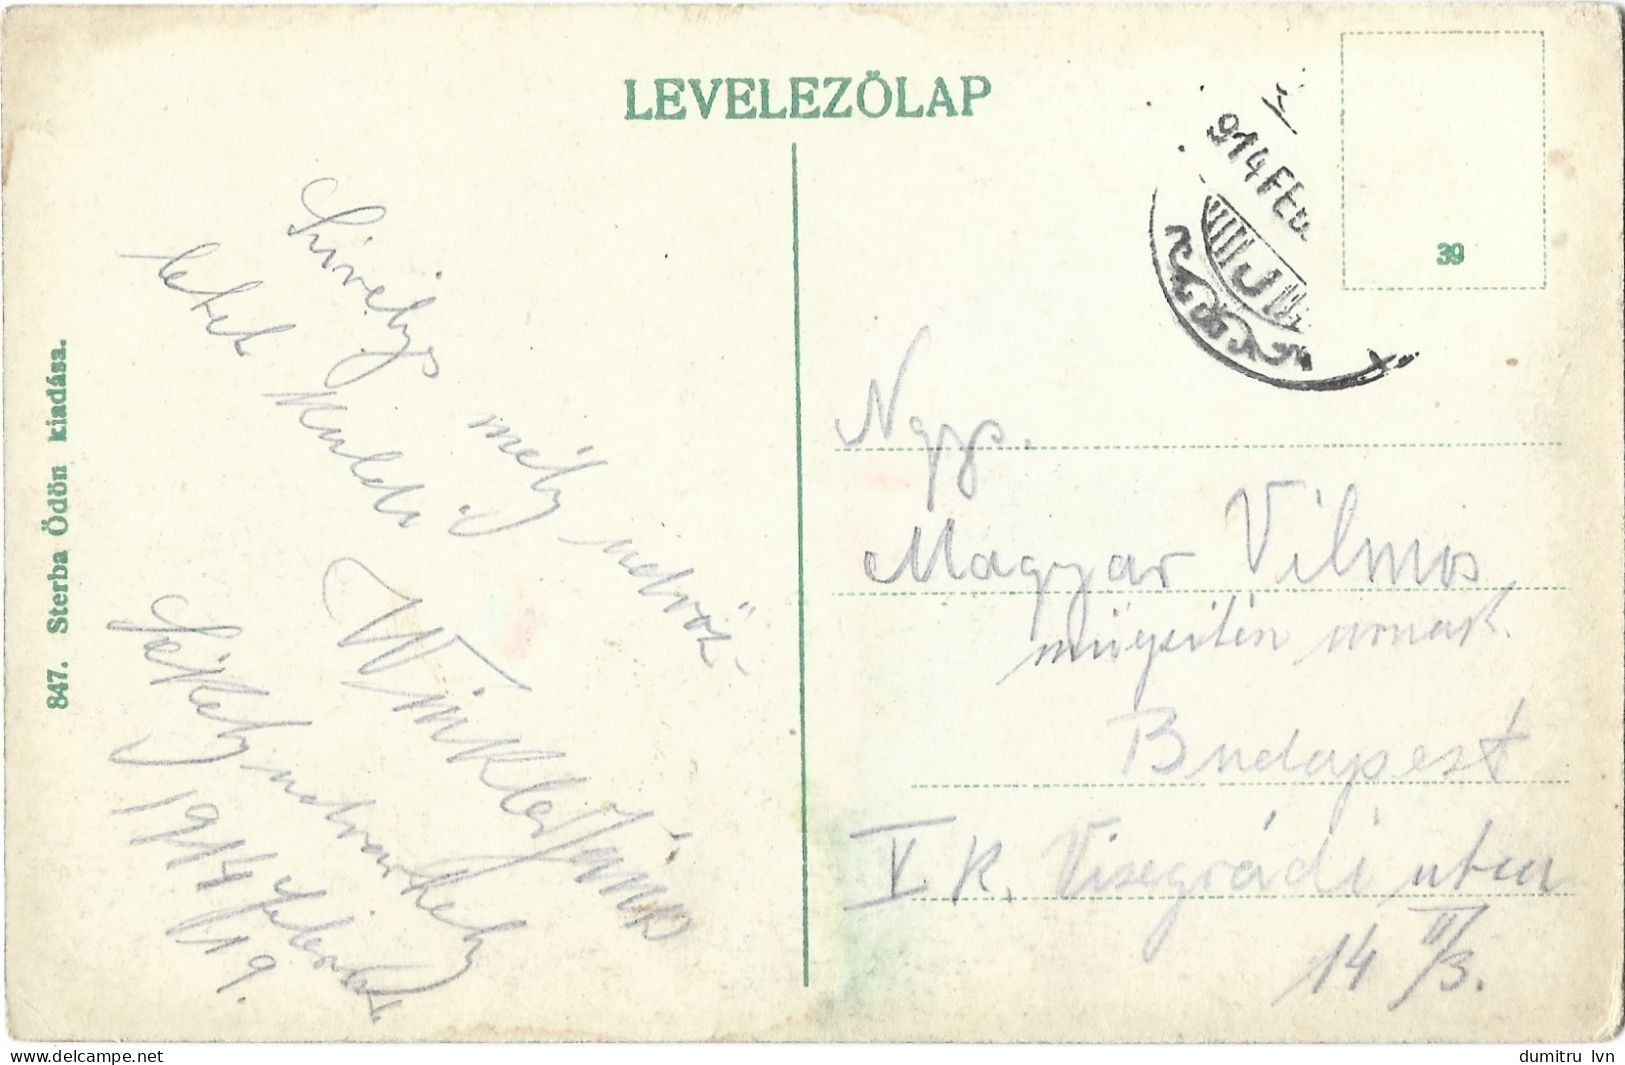 LEVELEZŐLAP
914 FEB
39
847. Sterba Ödön kiadása.
Szivélyes mély üdvöz-
letet küld
Winkler János
Székelyudvarhely
1914 febr
19.
Ngs.
Magyar Vilmos
úrnak.
Budapest
V. K. Visegrádi utca
14 II/3.
delcampe.net
dumitru_lvn